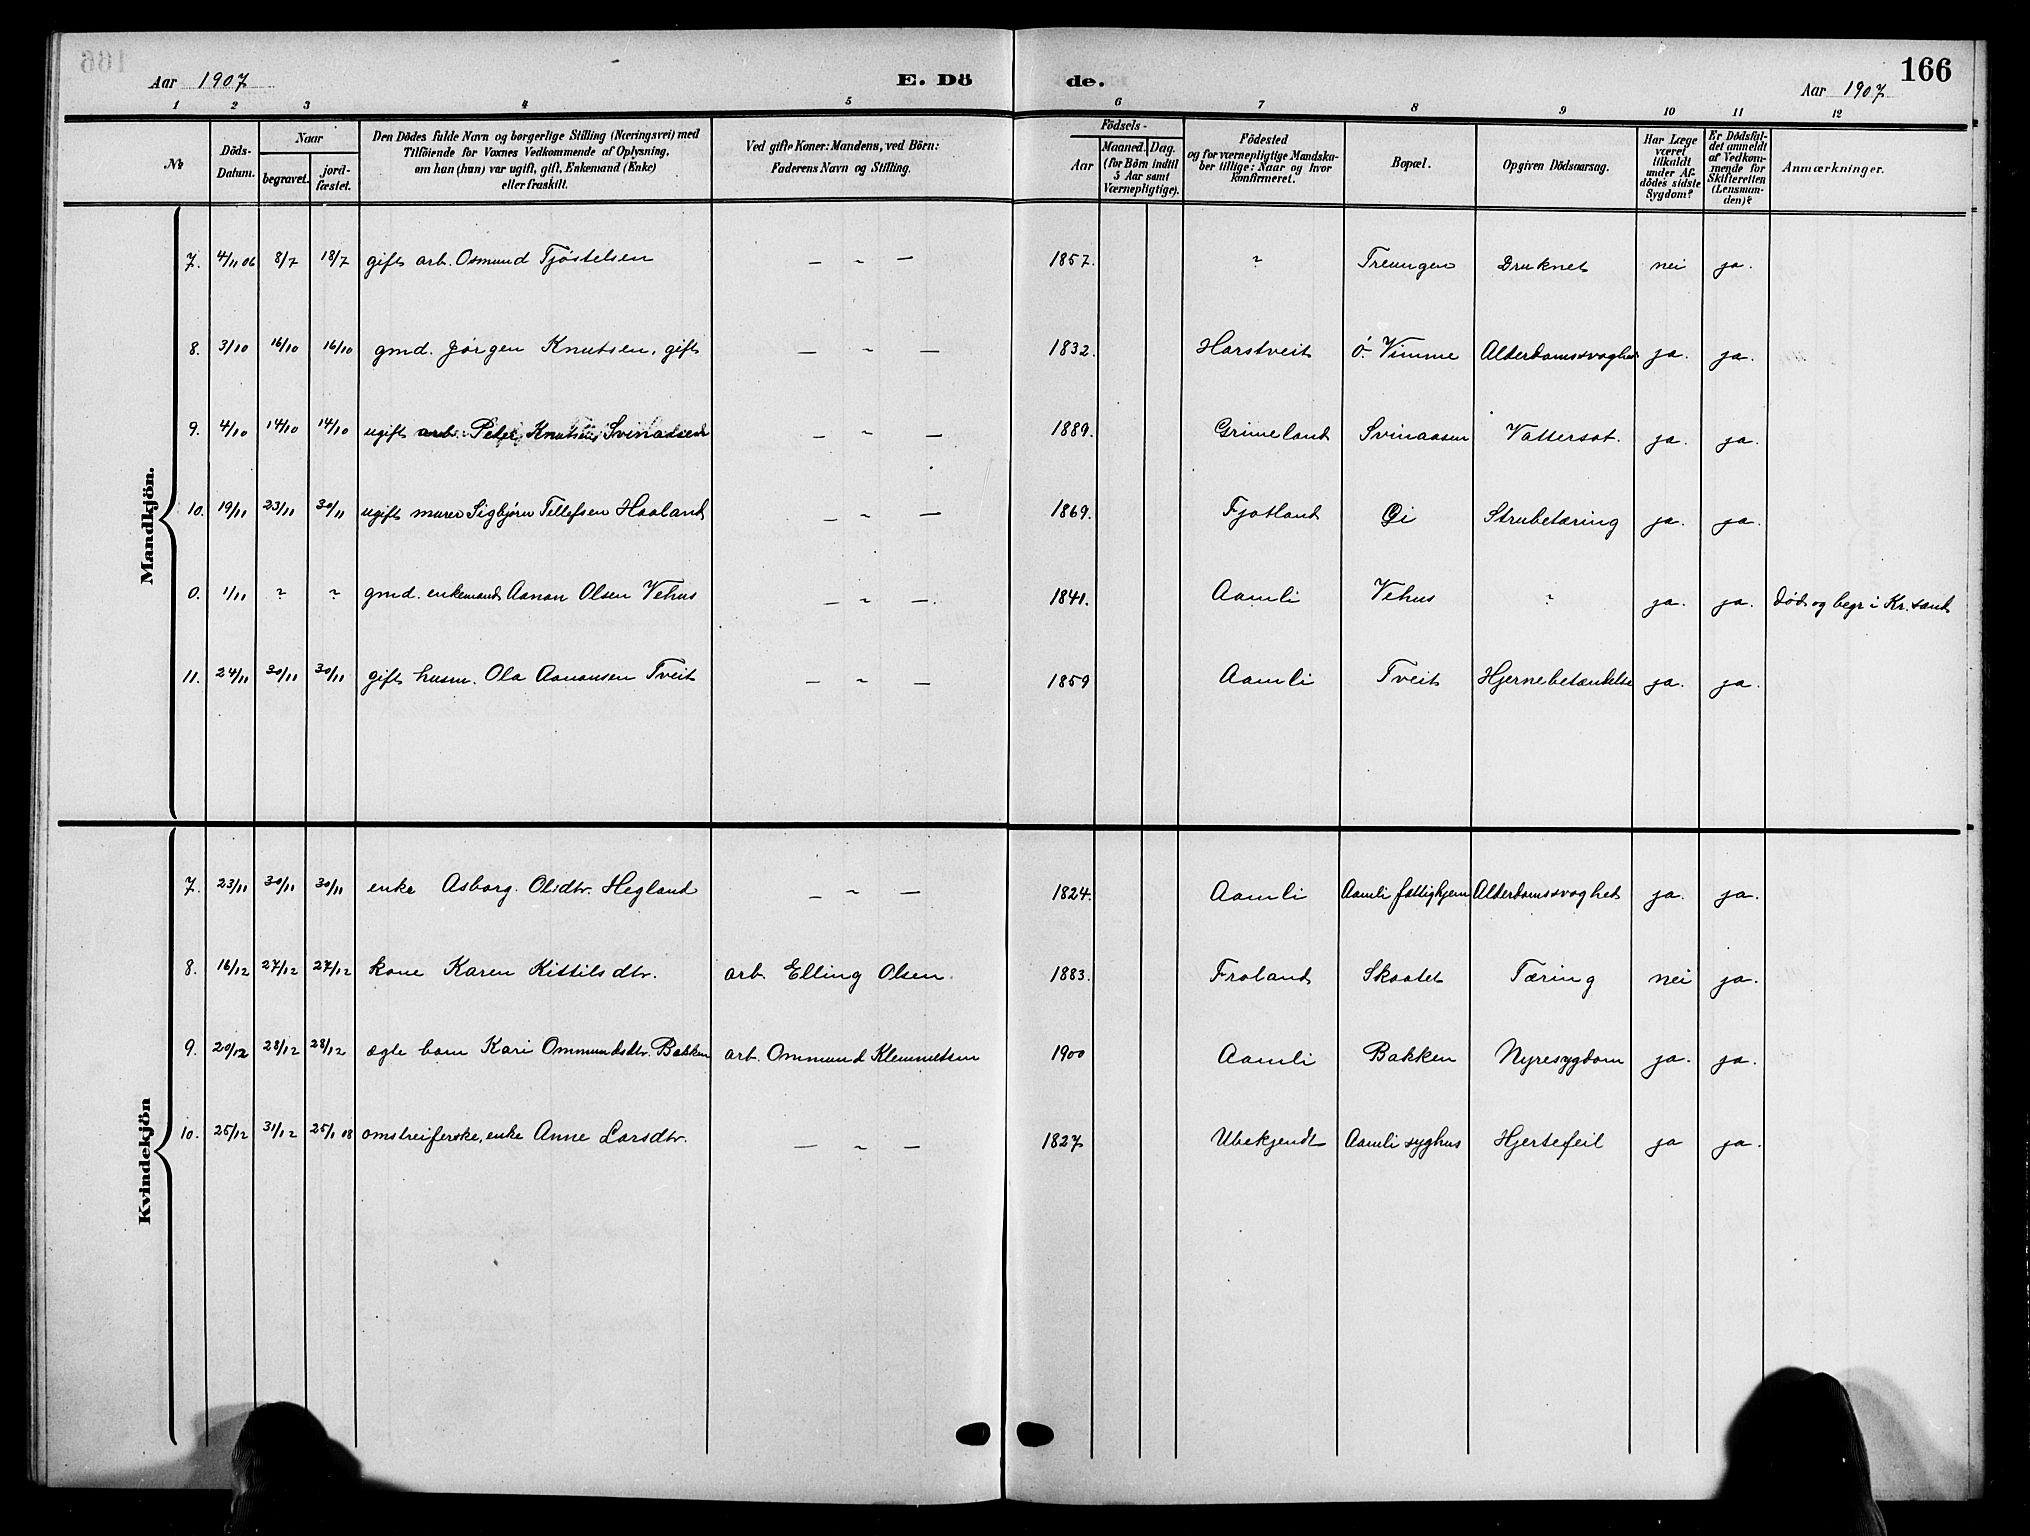 Aar 1907
E. Dö
de.
166
Aar 1907
1 2 3 4 5 6 7 8 9 10 11 12
No
Döds-Datum.
Naar
begravet.
jord-fæstet.
Den Dödes fulde Navn og borgerlige Stilling (Næringsvei) med
Tilföiende for Voxnes Vedkommende af Oplysning,
om han (hun) var ugift, gift, Enkemand (Enke)
eller fraskilt.
Ved gifte Koner: Mandens, ved Börn:
Faderens Navn og Stilling.
Födsels-
Aar
Maaned. Dag.
(for Börn indtil
5 Aar samt
Værnepligtige).
Födested
og for værnepligtige Mandska-
ber tillige: Naar og hvor
konfirmeret.
Bopæl.
Opgiven Dödsaarsag.
Har Læge
været
tilkaldt
under Af-
dödes sidste
Sygdom?
Er Dödsfal-
det anmeldt
af Vedkom-
mende for
Skifteretten
(Lensman-
den)?
Anmærkninger.
Mandkjön.
7. 4/11 06 8/7 18/7 gift arb. Osmund Tjöstelsen — " — 1857. " Treungen Druknet nei ja.
8. 3/10 16/10 16/10 gmd. Jörgen Knutsen, gift — " — 1832. Harstveit Ö. Vimme Alderdomssvaghed ja. ja.
9. 4/10 14/10 14/10 ugift arb. Peter Knutsen Svinaasen — " — 1889. Grimeland Svinaasen Vattersot. ja. ja.
10. 19/11 23/11 30/11 ugift murer Sigbjørn Tellefsen Haaland — " — 1869. Fjotland Øi Strubetæring ja. ja.
0. 1/11 " " gmd. enkemand Aanon Olsen Vehus — " — 1841. Aamli Vehus " ja. ja. död og begr i Kr.sand
11. 24/11 30/11 30/11 gift husm. Ola Aanonsen Tveit — " — 1859 Aamli Tveit Hjernebetændelse ja. ja.
Kvindekjön
7. 23/11 30/11 30/11 enke Asborg Olsdtr. Hegland — " — 1824. Aamli Aamli fattighjem Alderdomssvaghet ja. ja.
8. 16/12 27/12 27/12 kone Karen Kittilsdtr. arb. Elling Olsen 1883. Froland Skaatet Tæring nei ja.
9. 20/12 28/12 28/12 ægte barn Kari Ommundsdtr. Bakken arb. Ommund Klemmetsen 1900 Aamli Bakken Nyresygdom ja. ja.
10. 25/12 31/12 25/1 08 omstreiferske, enke Anne Larsdtr. — " — 1827 Ubekjendt Aamli syghus Hjertefeil ja ja.